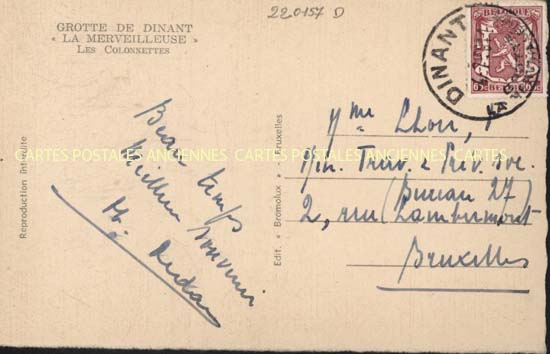 GROTTE DE DINANT
« LA MERVEILLEUSE »
LES COLONNETTES
220157 D
DINANT
BELGIQUE
Reproduction Interdite
Edit. Bromolux - Bruxelles
CARTES POSTALES ANCIENNES CARTES POSTALES ANCIENNES CARTES POSTALES ANCIENNES
Beau temps
Meilleur souvenir
Mme
Min. Trav. & Prév. Soc.
(Bureau 27)
2, rue Lambermont
Bruxelles